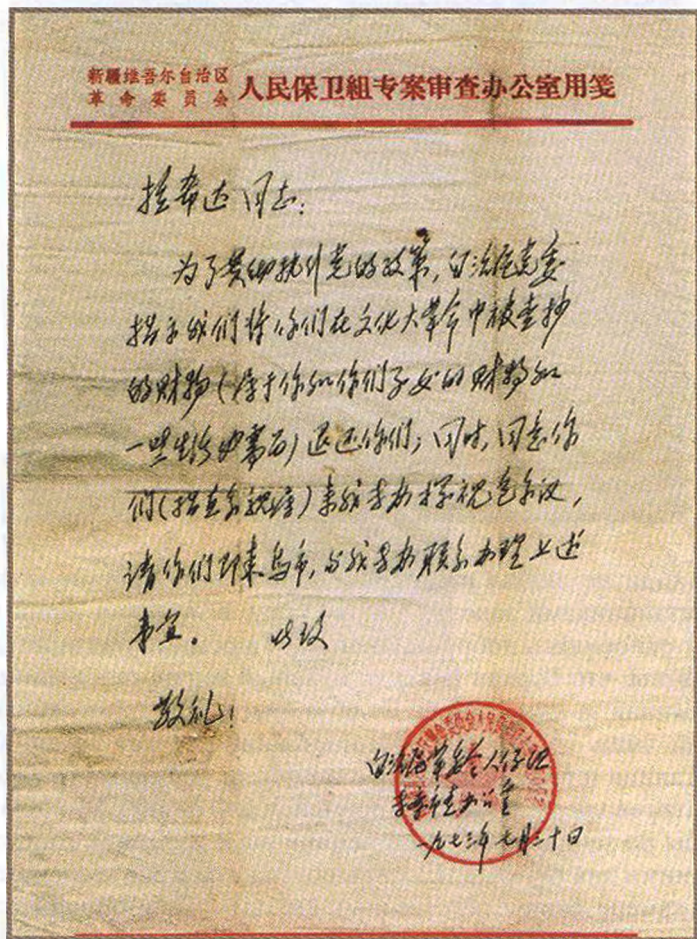 新疆维吾尔自治区
革命委员会 人民保卫組专案审查办公室用笺
拉希达同志:
为了贯彻执行党的政策,自治区党委
指示我们将你们在文化大革命中被查抄
的财物(属于你和你们子女的财物和
一些生活必需品)退还你们;同时,同意你
们(指直系亲属)来我专办探视包尔汉,
请你们即来乌市,与我专办联系办理上述
事宜。 此致
敬礼!
自治区革委会人保组
专案审查办公室
一九七三年七月二十日